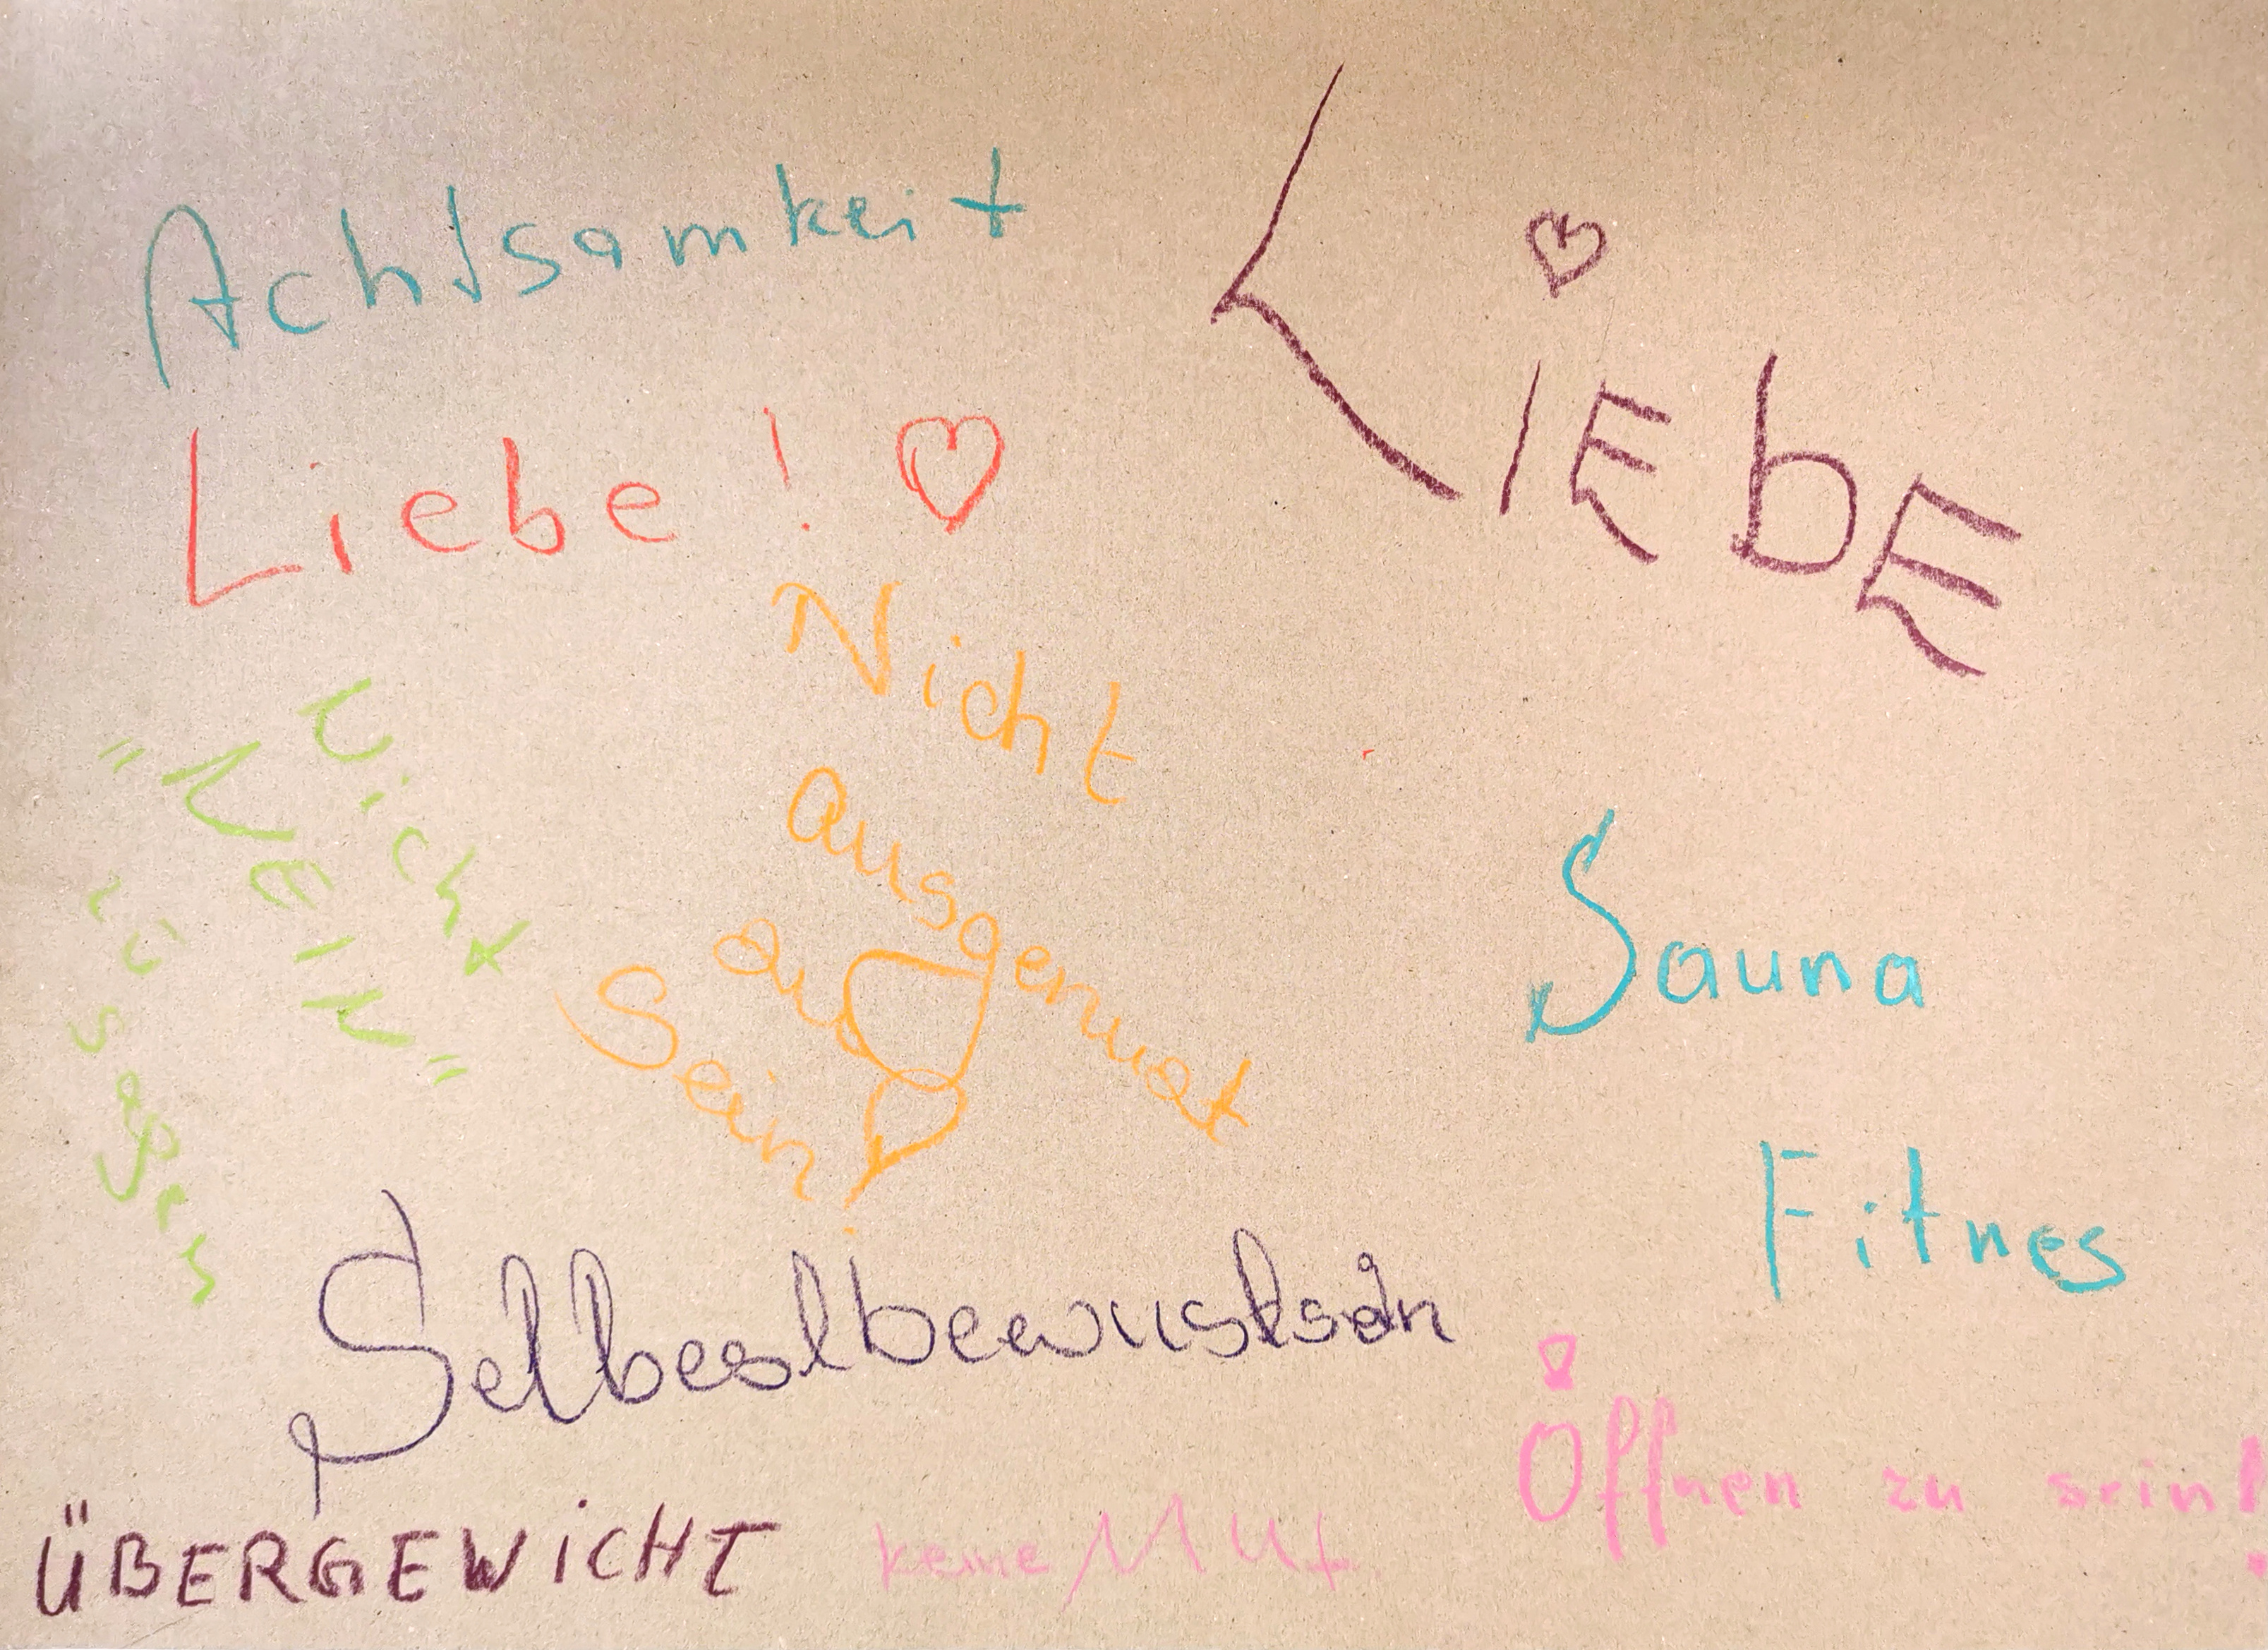 Achtsamkeit
LiEbE
Liebe!
Nicht
ausgenutzt
zu
Sein!
Nicht
"NEIN"
zu sagen
Sauna
Fitnes
Selbestbewustsein
Öffnen zu sein!
ÜBERGEWiCHT
keine Mut